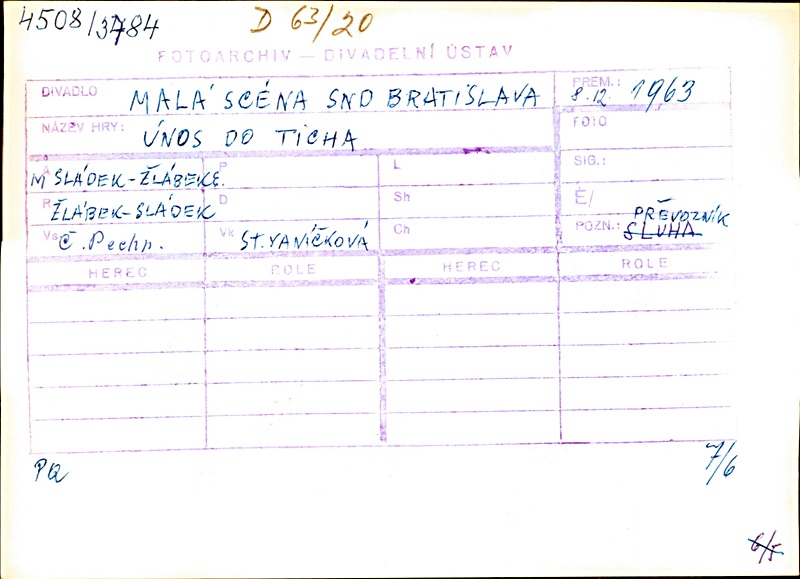 4508/3484 D 63/20
FOTOARCHIV – DIVADELNÍ ÚSTAV
DIVADLO MALÁ SCÉNA SND BRATISLAVA PREM.: 8.12. 1963
NÁZEV HRY: ÚNOS DO TICHA FOTO
A M SLÁDEK-ŽLÁBEK P L SIG.:
R ŽLÁBEK-SLÁDEK D Sh É/
PŘEVOZNÍK
Vs Č. Pechr. Vk ST.VANÍČKOVÁ Ch POZN.: SLUHA
HEREC ROLE HEREC ROLE
PQ 7/6
6/5